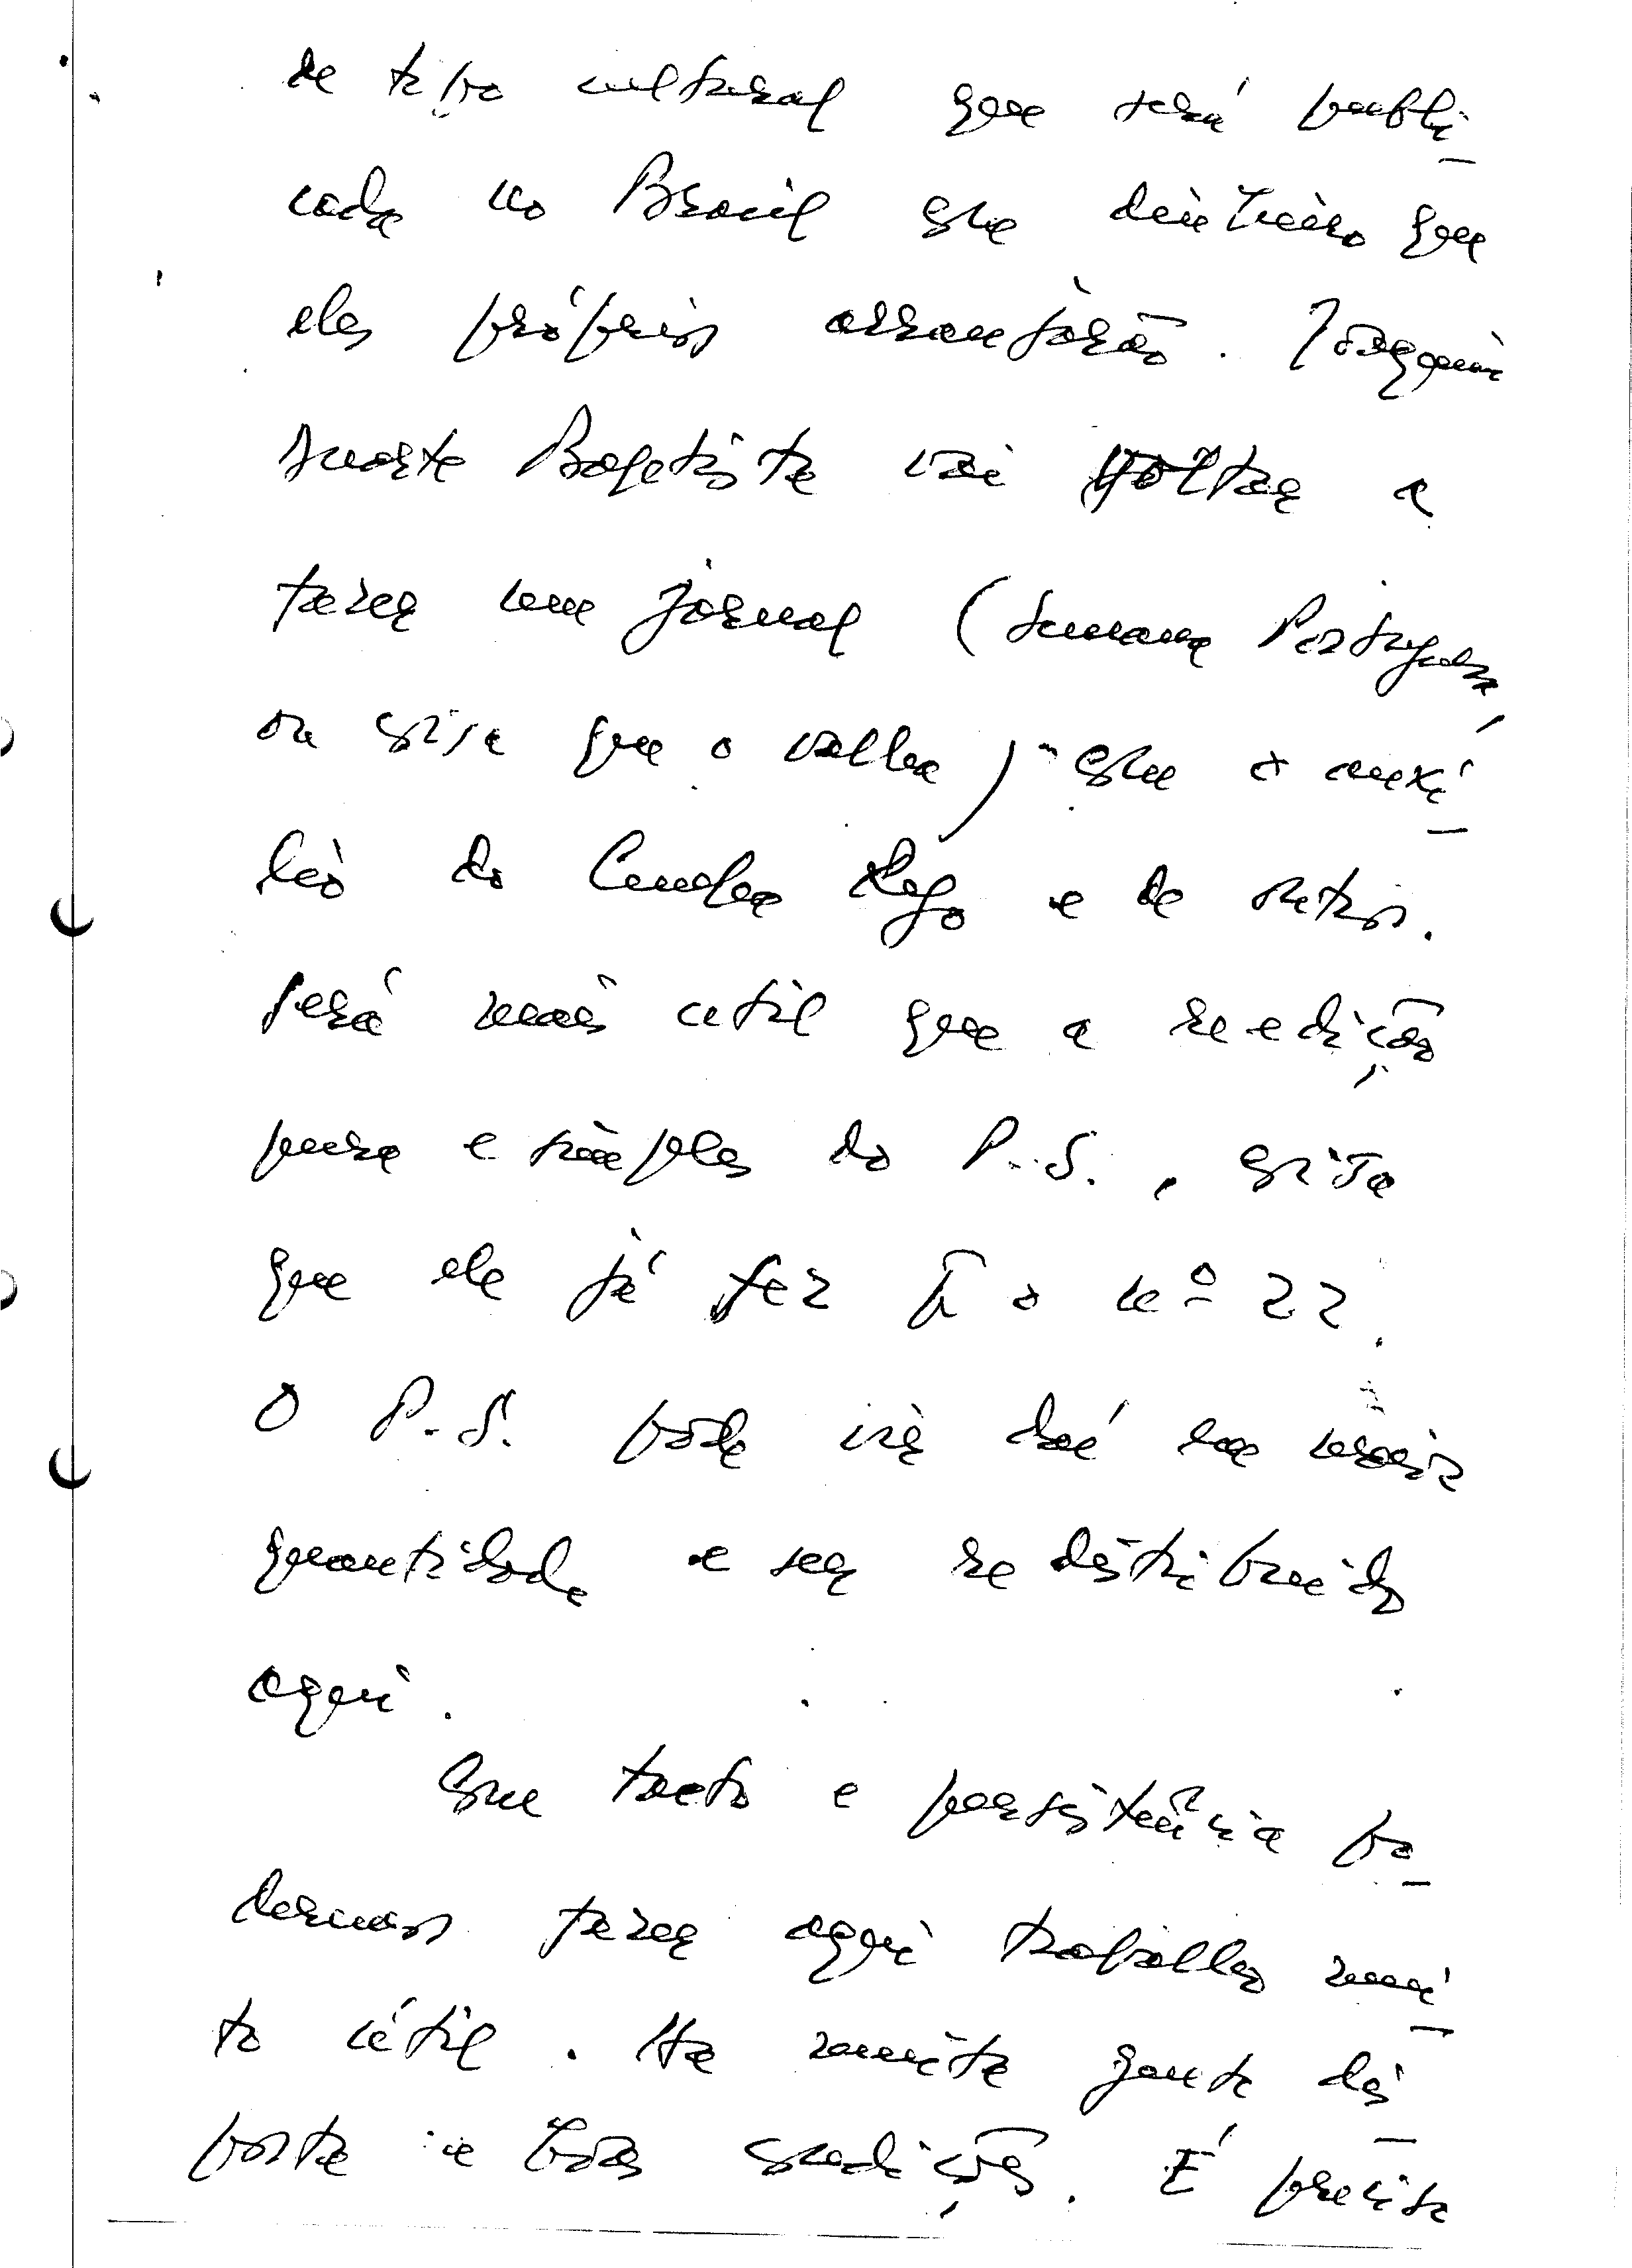 de tipo cultural que será publi-
cada no Brasil com dinheiro que
eles próprios arranjarão. Joaquim
Duarte Baptista vai voltar a
fazer um jornal (Semana Portuguesa,
ou coisa que o valha) com o auxí-
lio do Cunha Rego e de outros.
Será mais util que a reedição
pura e simples do P.S., coisa
que ele já fez p̃ o nº 22.
O P.S. pode vir daí em maior
quantidade e ser redistribuido
aqui.
Com tacto e persistência po-
demos fazer aqui trabalho mui-
to útil. Ha muita gente dis-
posta e boas condições. É preciso